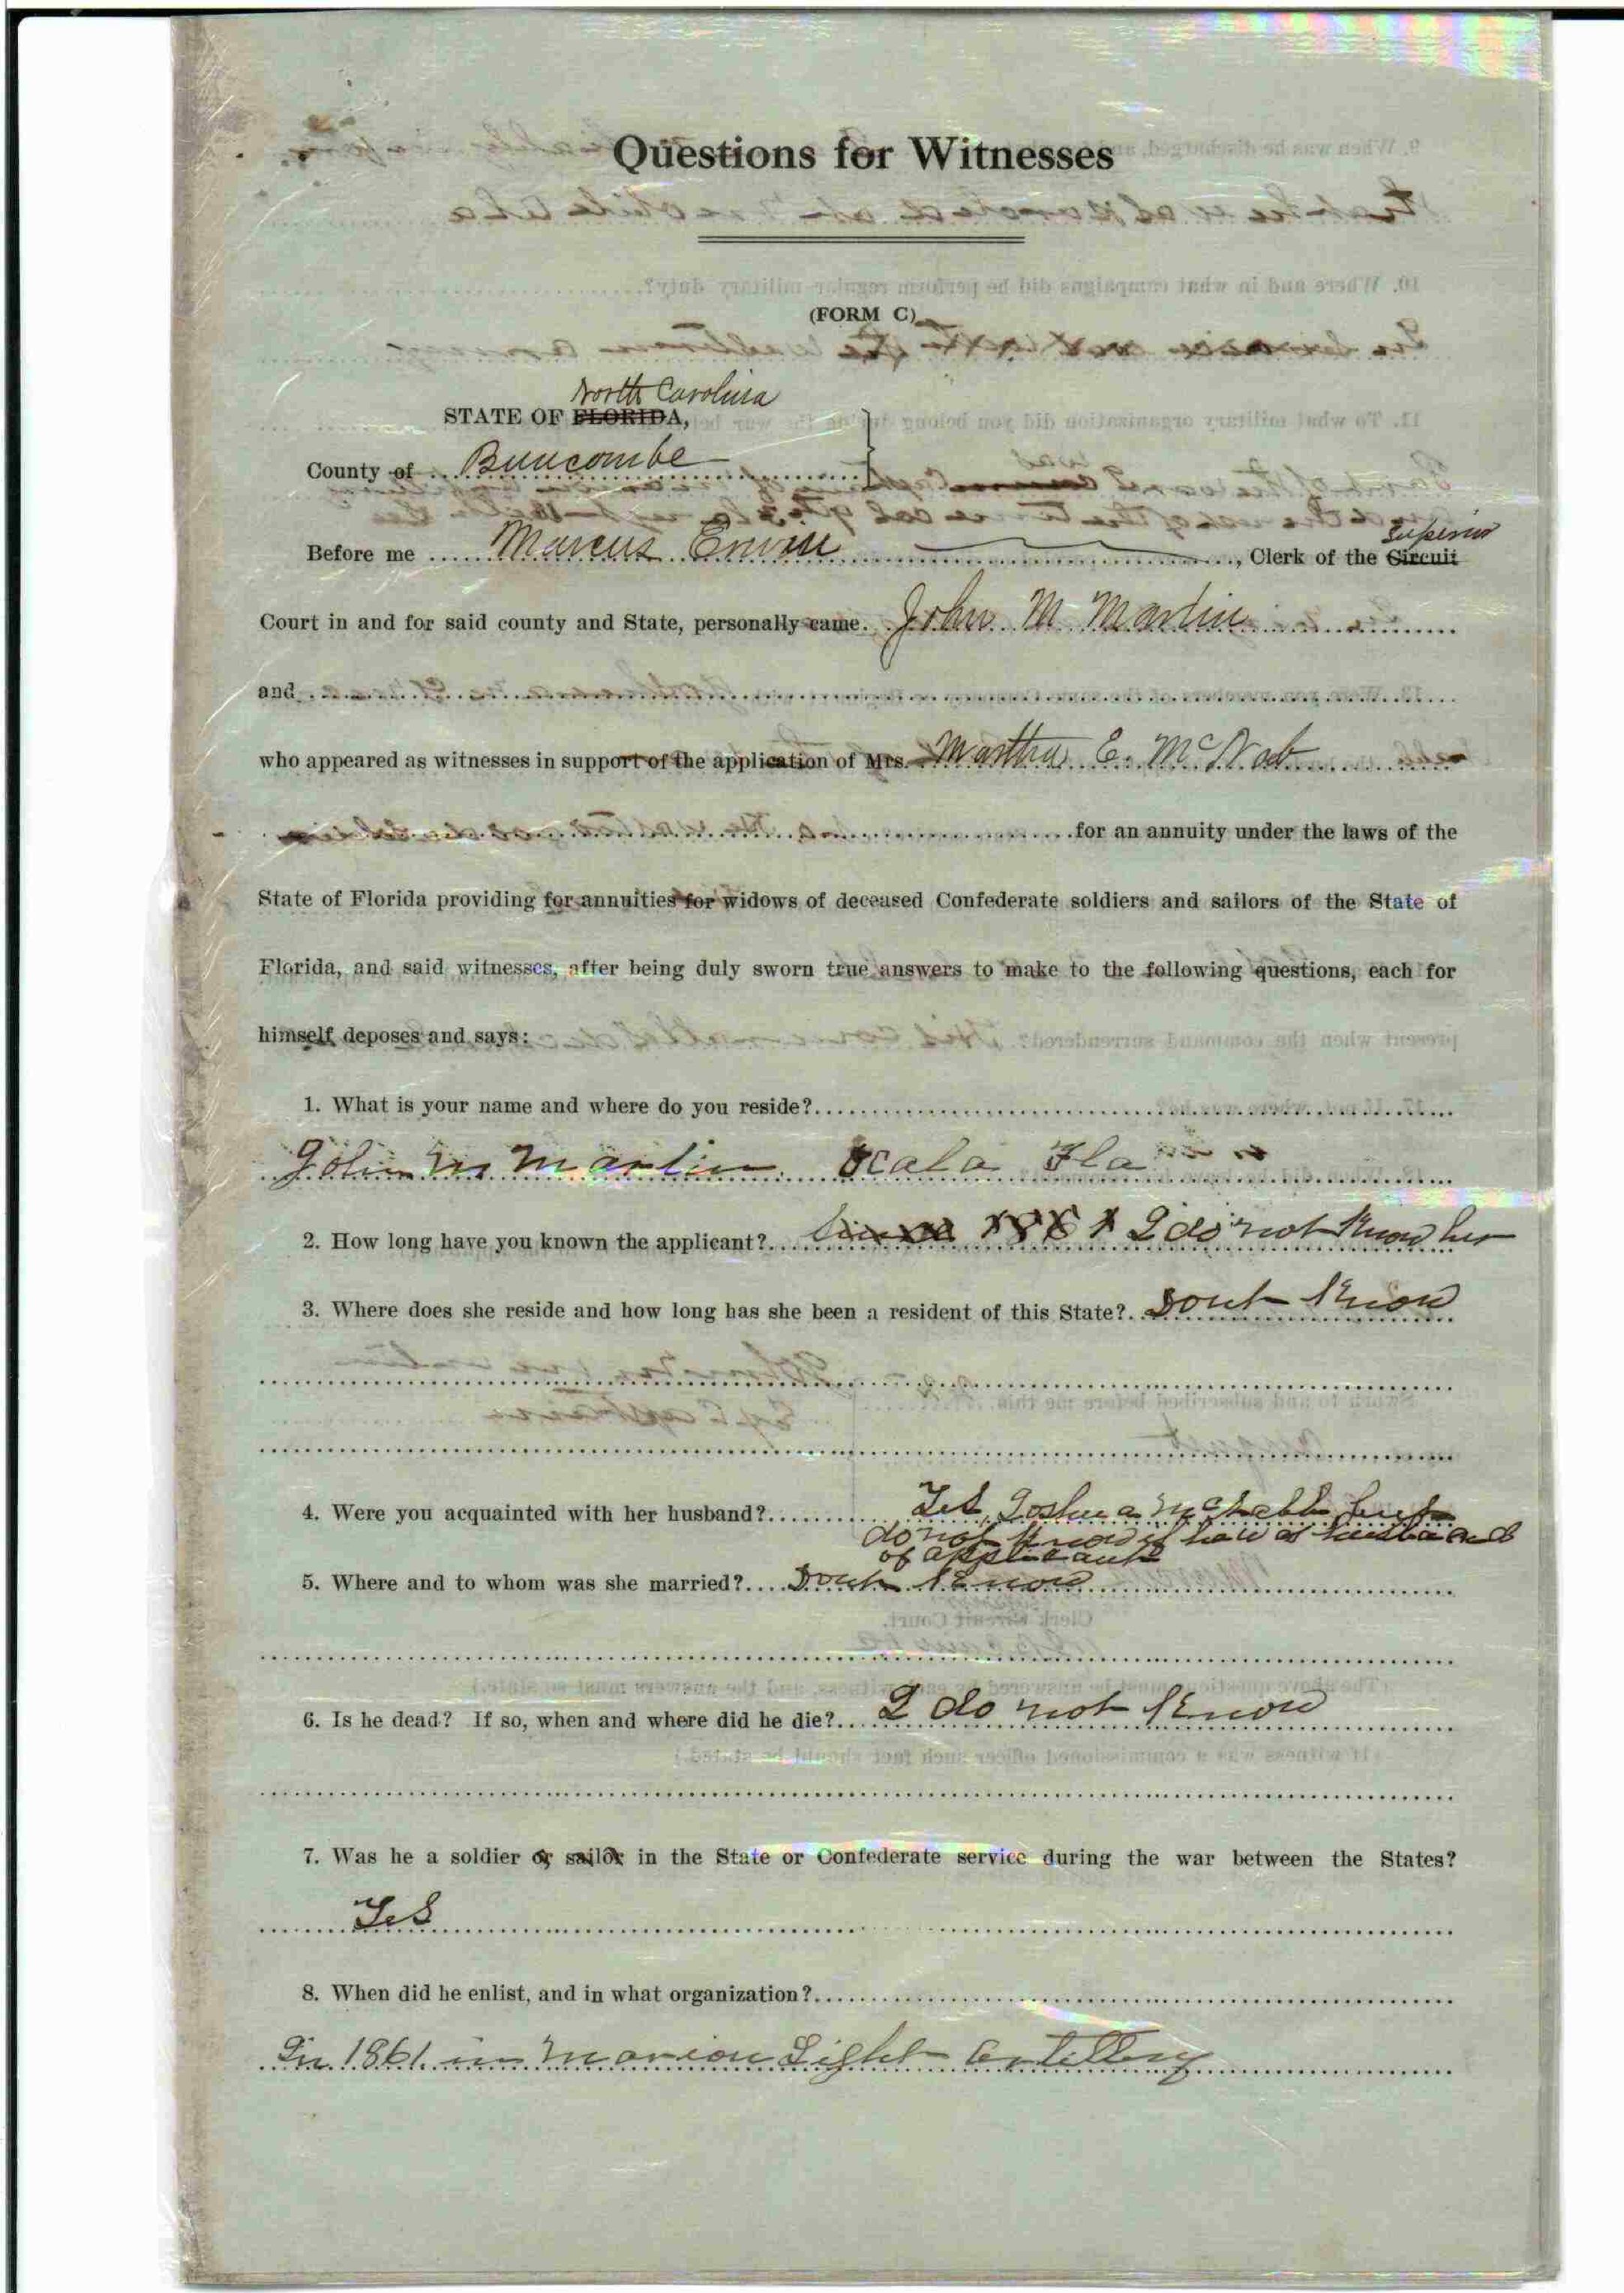 Questions for Witnesses
(FORM C)
North Carolina
STATE OF FLORIDA,
County of Buncombe
Superior
Before me Marcus Erwin, Clerk of the Circuit
Court in and for said county and State, personally came John M Martin
and
who appeared as witnesses in support of the application of Mrs. Martha E. McNab
for an annuity under the laws of the
State of Florida providing for annuities for widows of deceased Confederate soldiers and sailors of the State of
Florida, and said witnesses, after being duly sworn true answers to make to the following questions, each for
himself deposes and says:
1. What is your name and where do you reside?
John M Martin. Ocala Fla
2. How long have you known the applicant? Since 1861 I do not Know her
3. Where does she reside and how long has she been a resident of this State? Dont Know
4. Were you acquainted with her husband? Yes, Joshua McNabb but
do not Know if he is husband
of applicant
5. Where and to whom was she married? Dont Know
6. Is he dead? If so, when and where did he die? I do not Know
7. Was he a soldier or sailor in the State or Confederate service during the war between the States?
Yes
8. When did he enlist, and in what organization?
In 1861 in Marion Light Artillery